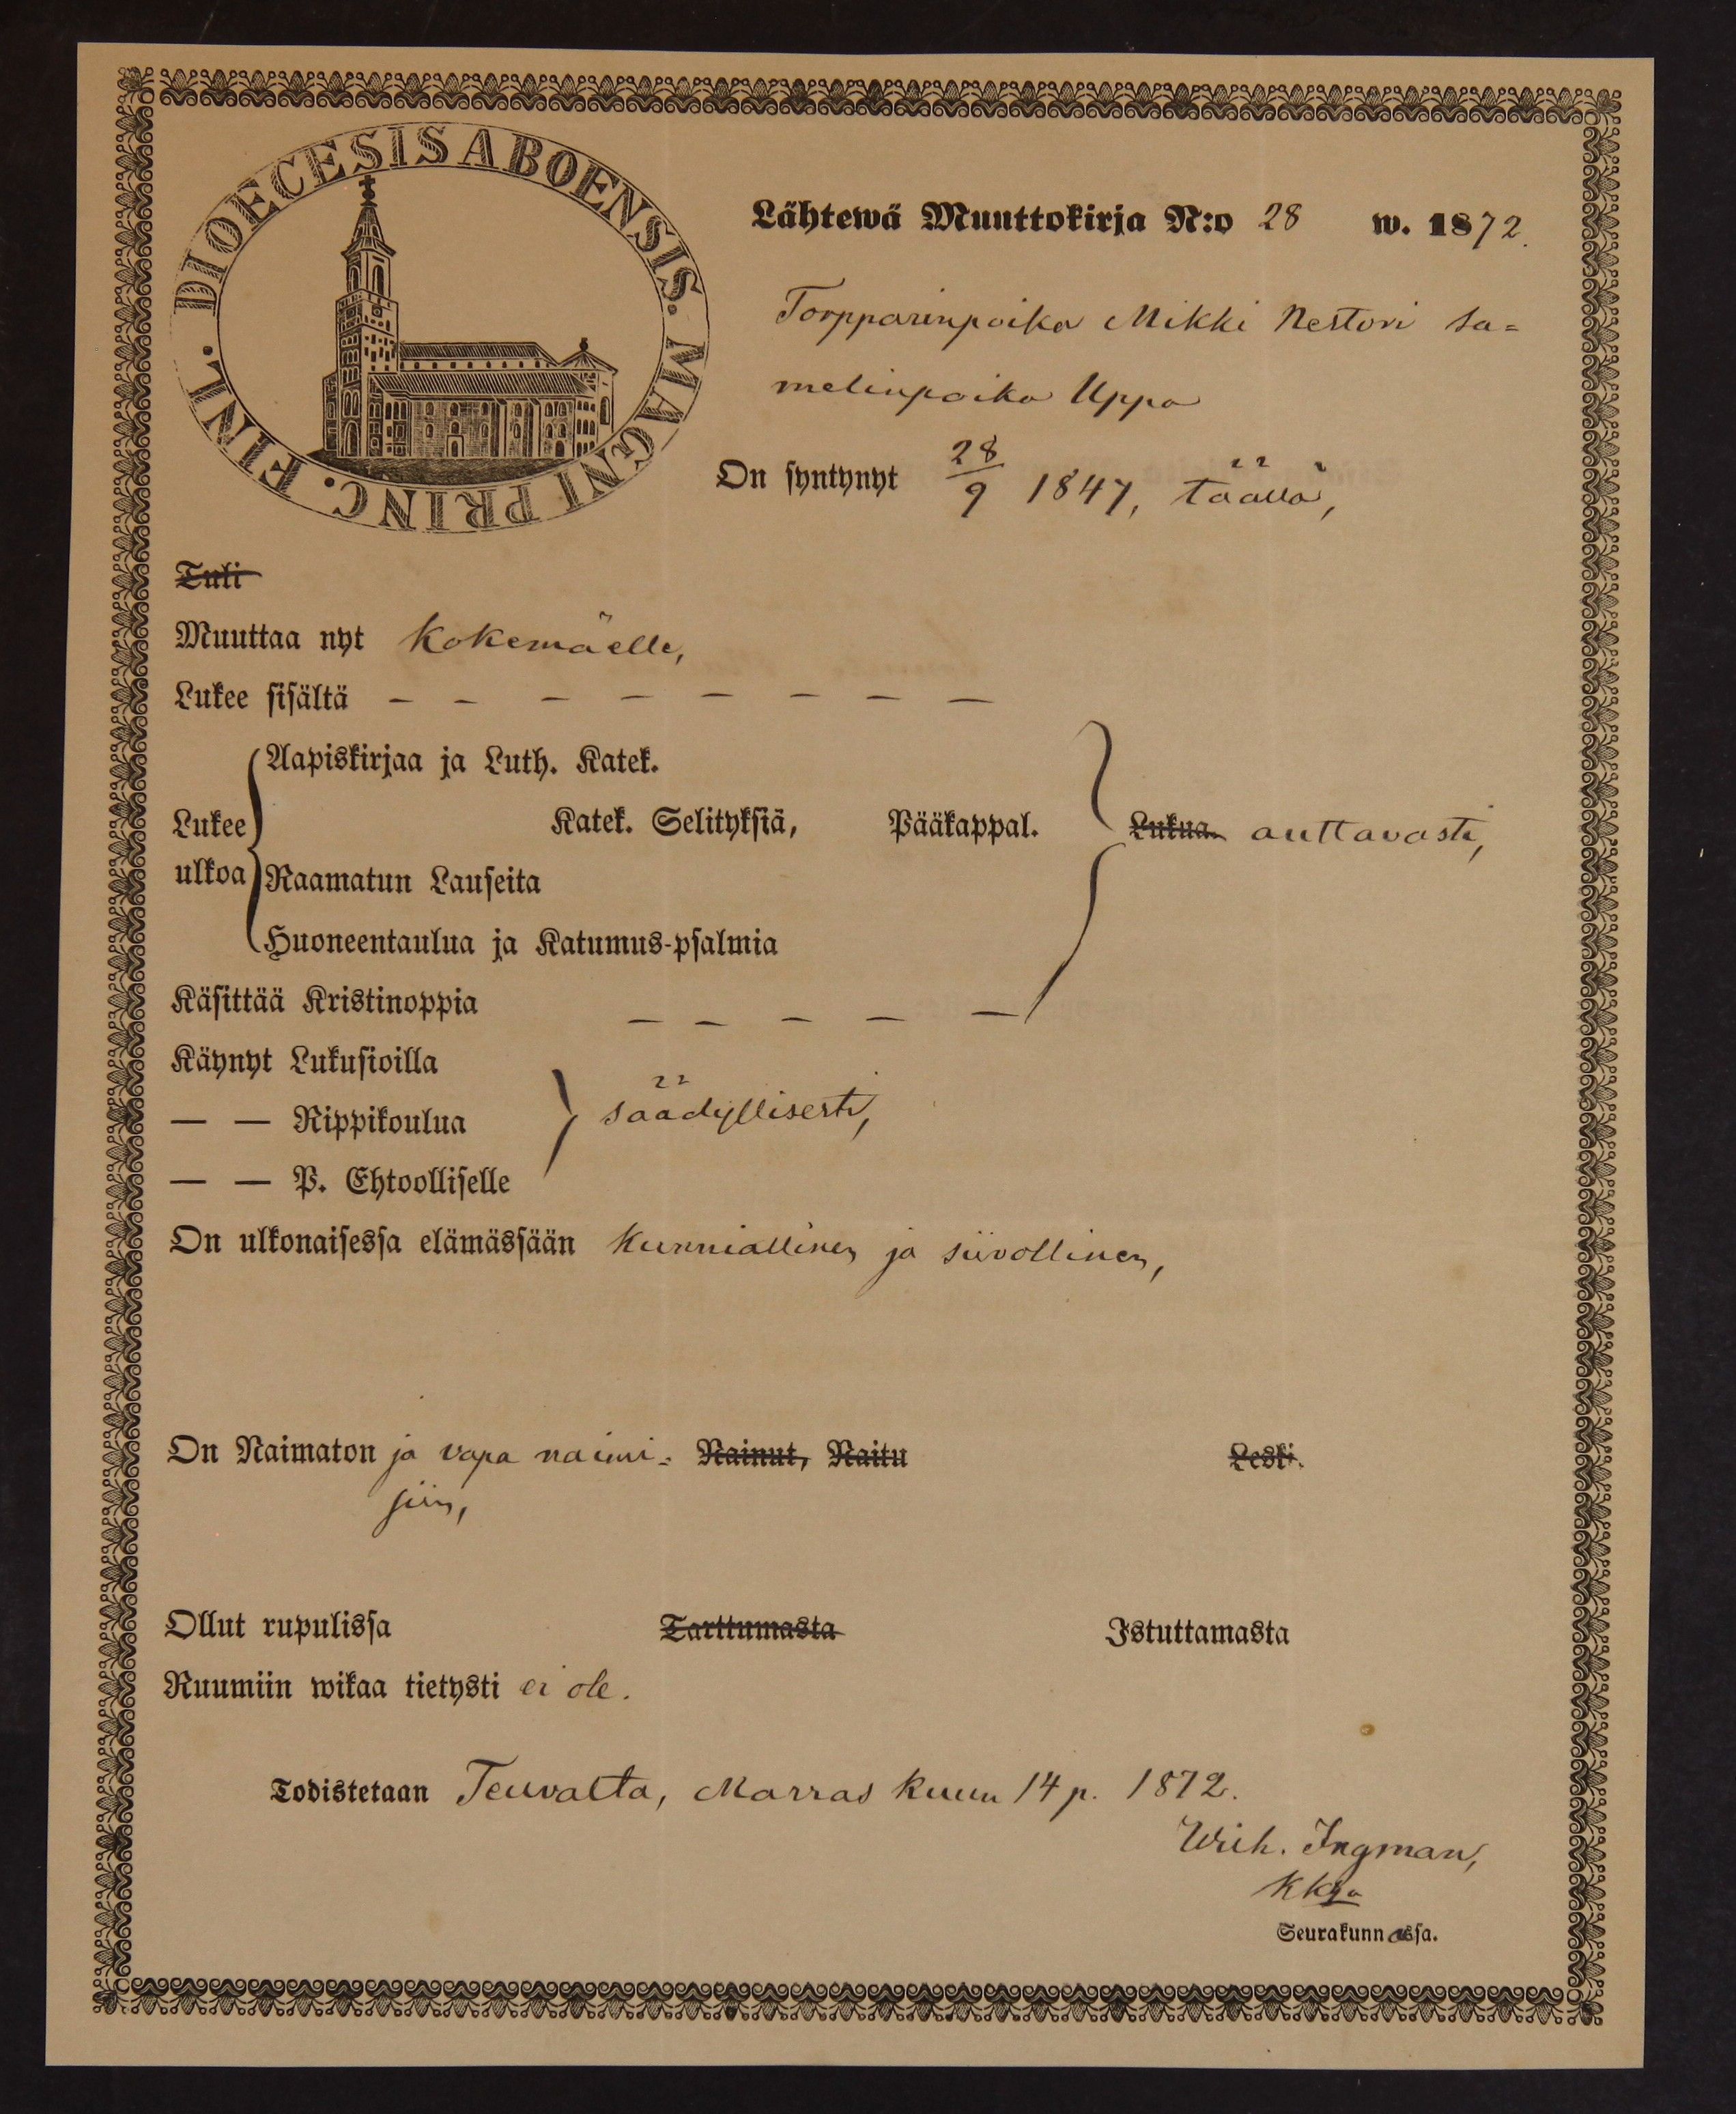 DIOECESIS ABOENSIS. MAGNI PRINC. FINL.
Lähtewä Muuttokirja N:o 28 w. 1872.
Torpparinpoika Mikki Nestori Sa=
melinpoika Uppa
On syntynyt 28/9 1847, täällä,
Tuli
Muuttaa nyt Kokemäelle,
Lukee sisältä – – – – – – – –
Aapiskirjaa ja Luth. Katek.
Lukee Katek. Selityksiä, Pääkappal. Lukua. auttavasti,
ulkoa Raamatun Lauseita
Huoneentaulua ja Katumus-psalmia
Käsittää Kristinoppia – – – – –
Käynyt Lukusioilla
— — Rippikoulua säädyllisesti,
— — P. Ehtoolliselle
On ulkonaisessa elämässään kunniallinen ja siivollinen,
On Naimaton ja vapa naimi= Nainut, Naitu Leski.
siin,
Ollut rupulissa Tarttumasta Istuttamasta
Ruumiin wikaa tietysti ei ole.
Todistetaan Teuvalta, Marras kuun 14 p. 1872.
Wilh. Ingman,
Seurakunnassa.